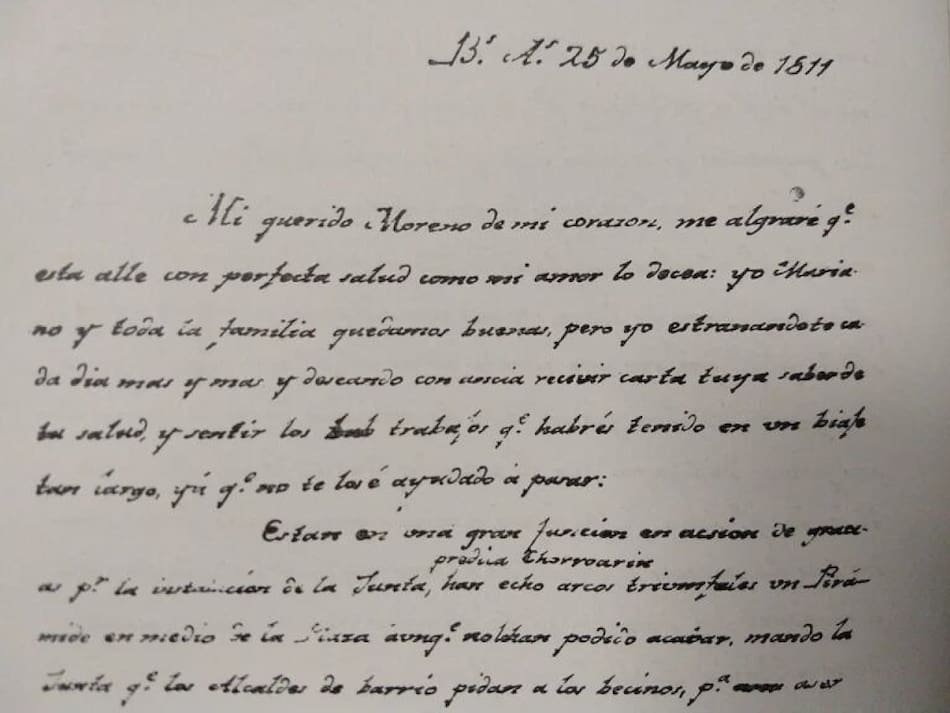 Bˢ. Aˢ. 25 de Mayo de 1811
Mi querido Moreno de mi corazon, me algraré qᵉ.
esta alle con perfecta salud como mi amor lo decea: yo Maria-
no y toda la familia quedamos buenos, pero yo estranandote ca-
da dia mas y mas y deseando con ancia recivir carta tuya saber de
tu salud, y sentir los trabajos qᵉ. habrés tenido en un biaje
tan largo, yá qᵉ. no te los é ayudado á pasar:
Estan en una gran funcion en acsion de graci-
predica Chorroarin
as pʳ. la instalacion de la Junta, han echo arcos triumfales un Pirá-
mide en medio de la Plaza aunqᵉ. no lo han podido acavar, mando la
Junta qᵉ. los Alcaldes de barrio pidan a los becinos, pᵃ.